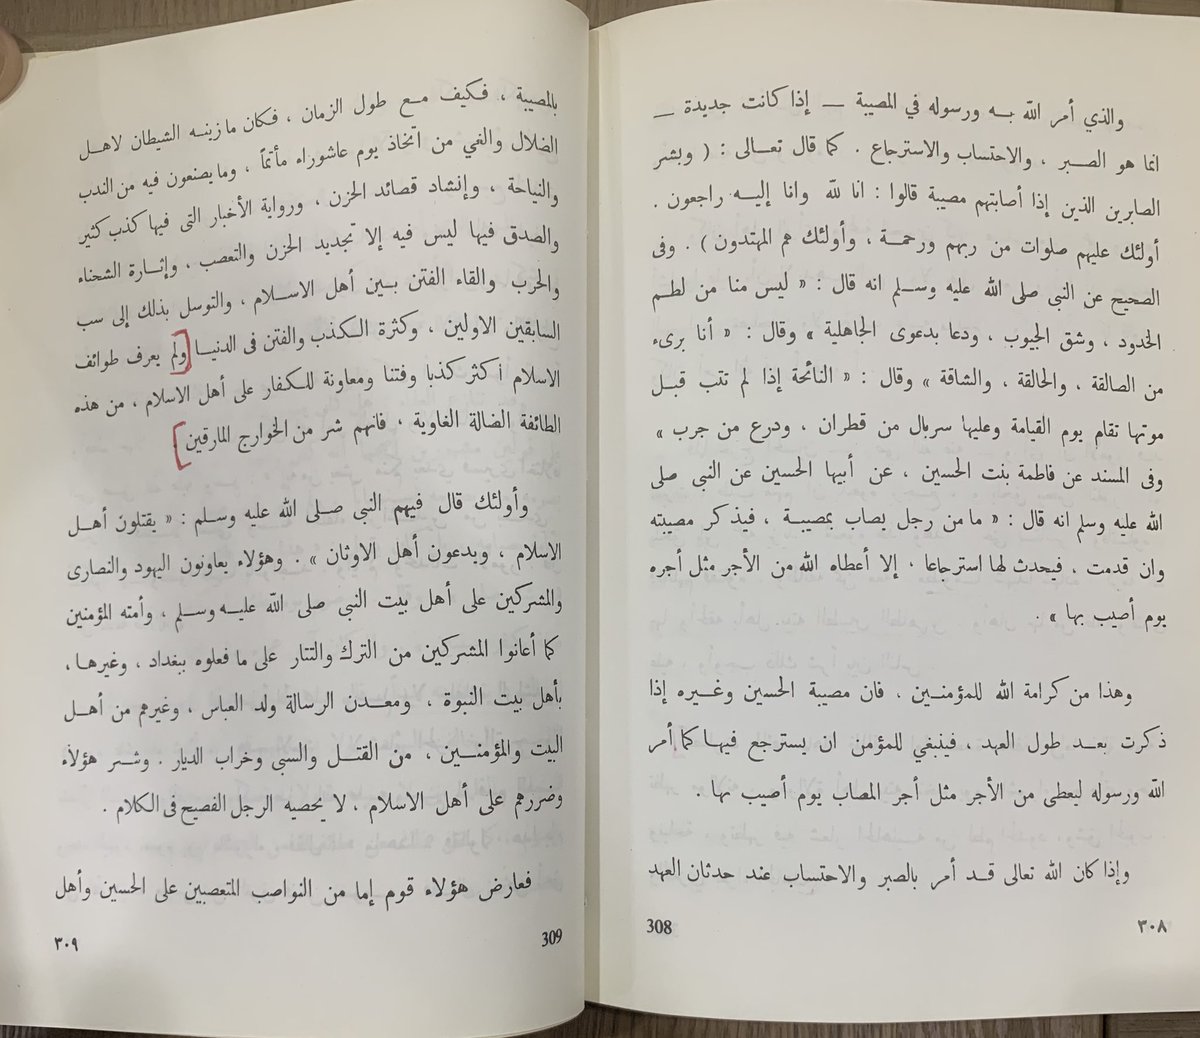 والذي أمر الله بـه ورسوله في المصيبة — إذا كانت جديدة —
انما هو الصـبر ، والاحتساب والاسترجاع . كما قال تعـالى : ( وبشر
الصابرين الذين إذا أصابتهم مصيبة قالوا : انا لله وانا إليـه راجعون .
أولئك عليهم صلوات من ربهم ورحمـة ، وأولئك هم المهتدون ) . وفى
الصحيح عن النبي صلى الله عليه وسـلم انه قال : « ليس منا من لطـم
الخدود ، وشق الجيوب ، ودعا بدعوى الجاهلية » وقال : « أنا برىء
من الصالقة ، والحالقة ، والشاقة » وقال : « النائحة إذا لم تتب قبـل
موتها تقام يوم القيامة وعليها سربال من قطران ، ودرع من جرب »
وفى المسند عن فاطمة بنت الحسين ، عن أبيها الحسين عن النبي صلى
الله عليه وسلم انه قال : « ما من رجل يصاب بمصيبـة ، فيذكر مصيبته
وان قدمت ، فيحدث لها استرجاعا . إلا أعطاه الله من الأجر مثل أجره
يوم أصيب بها » .
وهذا من كرامة الله للمؤمنـين ، فان مصيبة الحسين وغـيره إذا
ذكرت بعـد طول العهد ، فينبغي للمؤمن ان يسترجع فيهـا كما أمر
الله ورسوله ليعطى من الأجر مثل أجر المصاب يوم أصيب بها .
وإذا كان الله تعالى قـد أمر بالصبر والاحتساب عند حدثان العهد
308 ٣٠٨
بالمصيبة ، فكيف مـع طول الزمان ، فكان ما زينـه الشيطان لاهـل
الضلال والغي من اتخاذ يوم عاشوراء مأتماً ، وما يصنعون فيه من الندب
والنياحة ، وإنشاد قصائد الحزن ، ورواية الأخبار التى فيها كذب كثير
والصدق فيها ليس فيه إلا تجديد الحزن والتعصب ، وإثـارة الشحناء
والحرب والقاء الفتن بـين أهل الاسـلام ، والتوسل بذلك إلى سب
السابقين الاولين ، وكثرة الـكذب والفتن فى الدنيـا [ولم يعرف طوائف
الاسلام أكثر كذبا وفتنا ومعاونة للـكفار على أهل الاسلام ، من هذه
الطائفة الضالة الغاوية ، فانهم شر من الخوارج المارقين]
وأولئك قال فيهم النبي صـلى الله عليه وسـلم : « يقتلون أهـل
الاسلام ، ويدعون أهل الاوثان » . وهؤلاء يعاونون اليهود والنصارى
والمشركين على أهل بيت النبي صلى الله عليـه وسـلم ، وأمته المؤمنين
كما أعانوا المشركين من الترك والتتار على ما فعلوه ببغداد ، وغيرهـا ،
بأهل بيت النبوة ، ومعـدن الرسالة ولد العباس ، وغيرهم من أهـل
البيت والمؤمنـين ، من القتـل والسبى وخراب الديار . وشـر هؤلاء
وضررهم على أهل الاسلام ، لا يحصيه الرجل الفصيح فى الكلام .
فعارض هؤلاء قوم إما من النواصب المتعصبين على الحسين وأهل
309 ٣٠٩